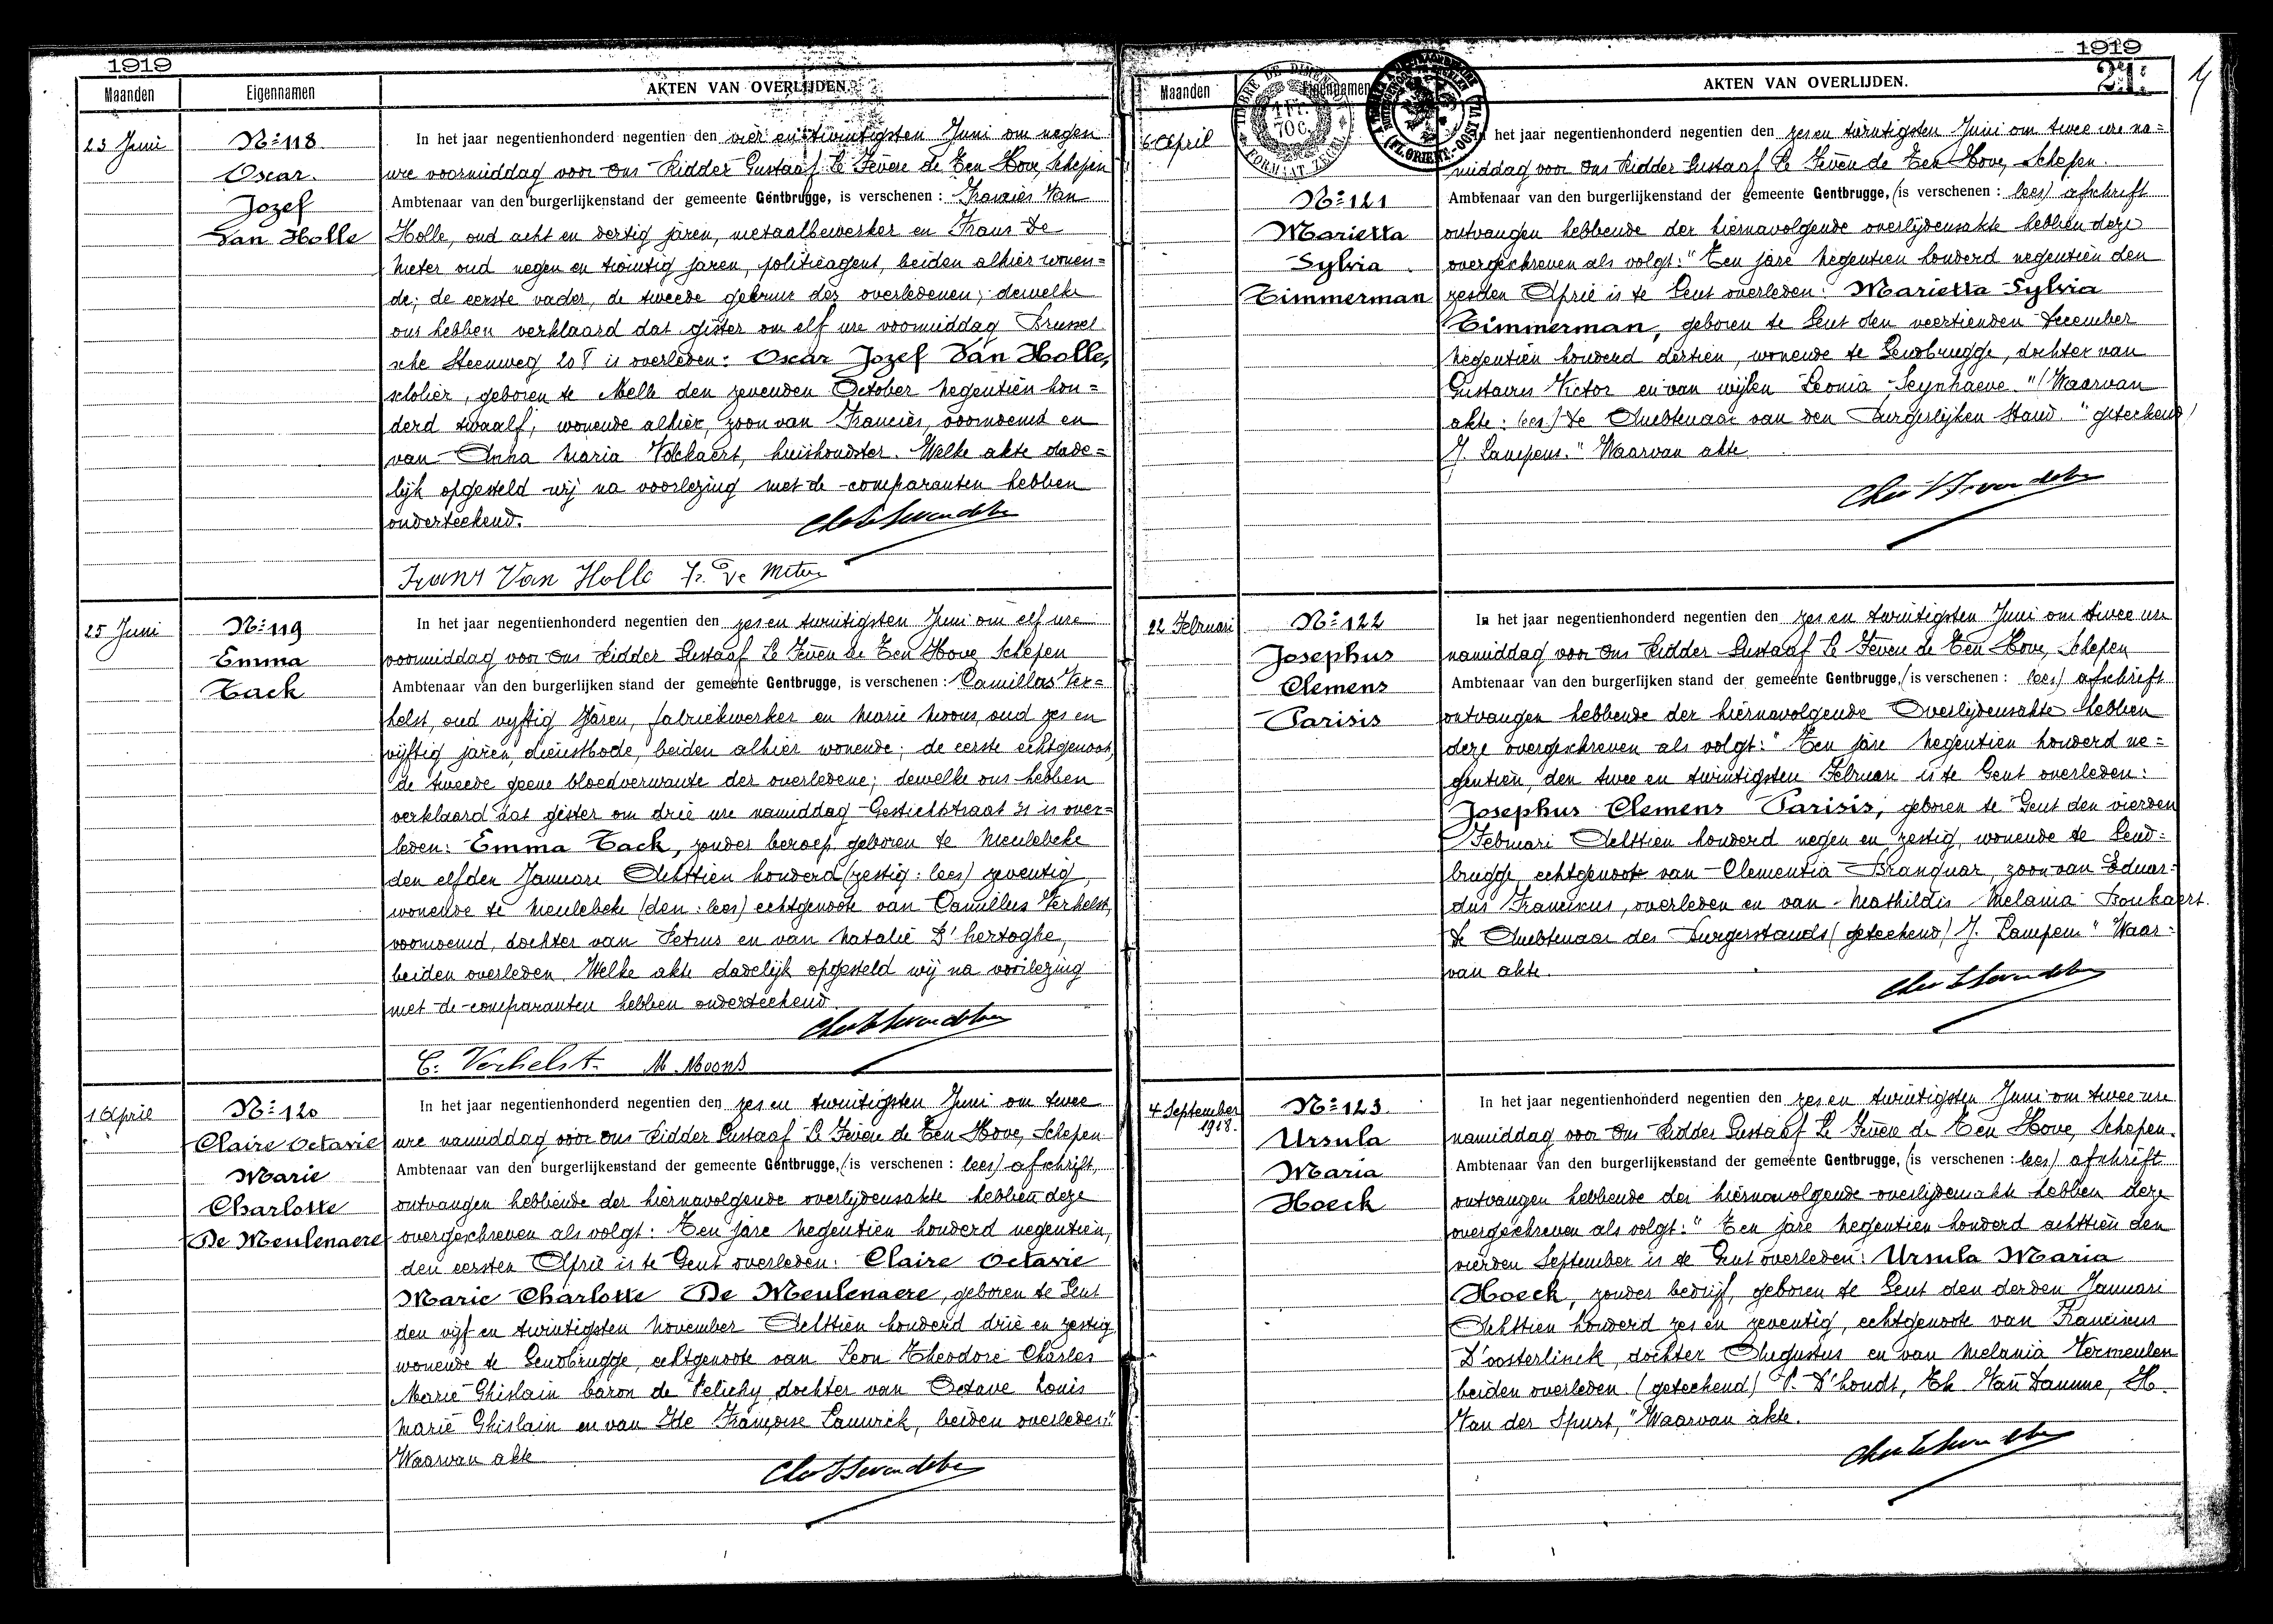 1919
Maanden
Eigennamen
AKTEN VAN OVERLIJDEN.
23 Juni
Nº 118.
Oscar.
Jozef
Van Holle
In het jaar negentienhonderd negentien den vier en twintigsten Juni om negen
ure voormiddag voor Ons Ridder Gustaaf Le Fevere de Ten Hove, Schepen
Ambtenaar van den burgerlijkenstand der gemeente Gentbrugge, is verschenen : Franciès Van
Holle, oud acht en dertig jaren, metaalbewerker en Frans De
Meter oud negen en twintig jaren, politieagent, beiden alhier wonen=
de; de eerste vader, de tweede gebuur des overledenen; dewelke
ons hebben verklaard dat gister om elf ure voormiddag Brussel
sche Steenweg 208 is overleden: Oscar Jozef Van Holle,
scholier, geboren te Melle den zevenden October negentien hon=
derd twaalf, wonende alhier, zoon van Franciès, voornoemd en
van Anna Maria Volckaert, huishoudster. Welke akte dade=
lijk opgesteld wij na voorlezing met de comparanten hebben
onderteekend.
Frans Van Holle Fr. De Meter
25 Juni
Nº 119
Emma
Tack
In het jaar negentienhonderd negentien den zes en twintigsten Juni om elf ure
voormiddag voor Ons Ridder Gustaaf Le Fevere de Ten Hove Schepen
Ambtenaar van den burgerlijken stand der gemeente Gentbrugge, is verschenen : Camillus Ver=
helst, oud vyftig jaren, fabriekwerker en Marie Moons, oud zes en
vijftig jaren, dienstbode, beiden alhier wonende; de eerste echtgenoot,
de tweede geene bloedverwante der overledene; dewelke ons hebben
verklaard dat gister om drie ure namiddag Gestichtstraat 31 is over=
leden: Emma Tack, zonder beroep, geboren te Meulebeke
den elfden Januari Achttien honderd (zestig: lees) zeventig,
wonende te Meulebeke (den: lees) echtgenoote van Camillus Verhelst,
voornoemd, dochter van Petrus en van Natalie D'hertoghe,
beiden overleden. Welke akte dadelijk opgesteld wij na voorlezing
met de comparanten hebben onderteekend.
C. Verhelst. M. Moons
1 April
Nº 120
Claire Octavie
Marie
Charlotte
De Meulenaere
In het jaar negentienhonderd negentien den zes en twintigsten Juni om twee
ure namiddag voor Ons Ridder Gustaaf Le Fevere de Ten Hove, Schepen
Ambtenaar van den burgerlijkenstand der gemeente Gentbrugge, (is verschenen : lees) afschrift,
ontvangen hebbende der hiernavolgende overlijdensakte hebben deze
overgeschreven als volgt: Ten jare negentien honderd negentien,
den eersten April is te Gent overleden: Claire Octavie
Marie Charlotte De Meulenaere, geboren te Gent
den vijf en twintigsten November Achttien honderd drie en zestig
wonende te Gendbrugge, echtgenoote van Leon Theodore Charles
Marie Ghislain baron de Pelichy, dochter van Octave Louis
Marie Ghislain en van Ide Françoise Lauwick, beiden overleden."
Waarvan akte
1919
21:
Maanden
Eigennamen
AKTEN VAN OVERLIJDEN.
TIMBRE DE DIMENSION
1 Fr.
70 C.
FORMAAT ZEGEL
6 April
Nº 121
Marietta
Sylvia
Timmerman
In het jaar negentienhonderd negentien den zes en twintigsten Juni om twee ure na=
middag voor Ons Ridder Gustaaf Le Fevere de Ten Hove, Schepen.
Ambtenaar van den burgerlijkenstand der gemeente Gentbrugge, (is verschenen : lees) afschrift
ontvangen hebbende der hiernavolgende overlijdensakte hebben deze
overgeschreven als volgt: "Ten jare negentien honderd negentien den
zesden April is te Gent overleden: Marietta Sylvia
Timmerman, geboren te Gent den veertienden December
negentien honderd dertien, wonende te Gendbrugge, dochter van
Gustavus Victor en van wijlen Leonia Seynhaeve. "(Waarvan
akte: lees) De Ambtenaar van den Burgerlijken Stand. "geteekend)
J. Lampens." Waarvan akte.
22 Februari
Nº 122
Josephus
Clemens
Parisis
In het jaar negentienhonderd negentien den zes en twintigsten Juni om twee ure
namiddag voor Ons Ridder Gustaaf Le Fevere de Ten Hove, Schepen
Ambtenaar van den burgerlijken stand der gemeente Gentbrugge, (is verschenen : lees) afschrift
ontvangen hebbende der hiernavolgende Overlijdensakte hebben
deze overgeschreven als volgt: "Ten jare negentien honderd ne=
gentien, den twee en twintigsten Februari is te Gent overleden:
Josephus Clemens Parisis, geboren te Gent den vierden
Februari Achttien honderd negen en zestig, wonende te Gend=
brugge, echtgenoot van Clementia Branquar, zoon van Eduar=
dus Franciscus, overleden en van Mathildis Melania Boukaert.
De Ambtenaar des Burgerstands (geteekend) J. Lampens" Waar=
van akte.
4 September
1918.
Nº 123.
Ursula
Maria
Hoeck
In het jaar negentienhonderd negentien den zes en twintigsten Juni om twee ure
namiddag voor Ons Ridder Gustaaf Le Fevere de Ten Hove, Schepen.
Ambtenaar van den burgerlijkenstand der gemeente Gentbrugge, (is verschenen : lees) afschrift
ontvangen hebbende der hiernavolgende overlijdensakte hebben deze
overgeschreven als volgt: "Ten jare negentien honderd achttien den
vierden September is te Gent overleden: Ursula Maria
Hoeck, zonder bedrijf, geboren te Gent den derden Januari
Achttien honderd zes en zeventig, echtgenoote van Franciscus
D'oosterlinck, dochter Augustus en van Melania Vermeulen
beiden overleden. (geteekend) P. D'hondt, Th. Van Damme, H.
Van der Spurt, "Waarvan akte.